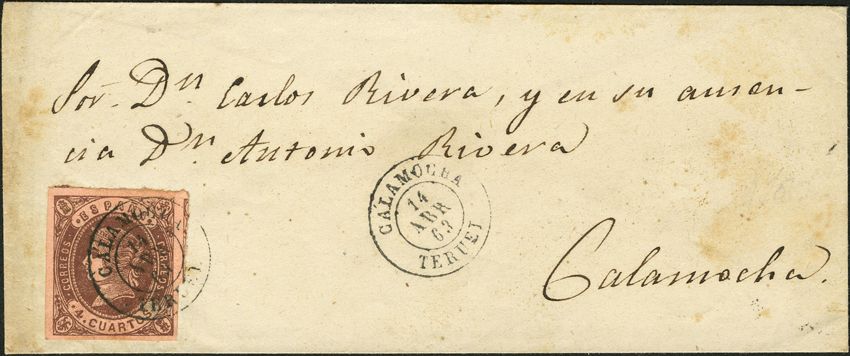 Sor. Dn Carlos Rivera, y en su ausen-
cia Dn Antonio Rivera
CALAMOCHA
14
ABR
63
TERUEL
Calamocha.
ESPAÑA
CORREOS
CORREOS
4. CUARTOS
CALAMOCHA
14
TERUEL